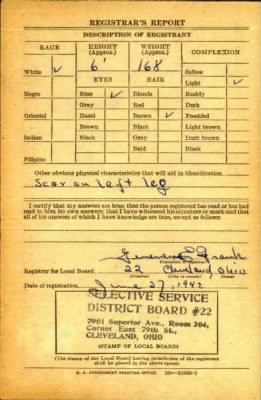 REGISTRAR'S REPORT
DESCRIPTION OF REGISTRANT
RACE HEIGHT (Approx.) WEIGHT (Approx.) COMPLEXION
White ✓ 6' 168 Sallow
EYES HAIR Light ✓
Negro Blue ✓ Blonde Ruddy
Gray Red Dark
Oriental Hazel Brown ✓ Freckled
Brown Black Light brown
Indian Black Gray Dark brown
Bald Black
Filipino
Other obvious physical characteristics that will aid in identification
Scar on left leg
I certify that my answers are true; that the person registered has read or has had
read to him his own answers; that I have witnessed his signature or mark and that
all of his answers of which I have knowledge are true, except as follows:
Genevieve Frank
Registrar for Local Board 22 Cleveland Ohio
(Number) (City or county) (State)
Date of registration June 27, 1942
SELECTIVE SERVICE
DISTRICT BOARD #22
7901 Superior Ave., Room 204,
Corner East 79th St.,
CLEVELAND, OHIO
(STAMP OF LOCAL BOARD)
(The stamp of the Local Board having jurisdiction of the registrant
shall be placed in the above space)
U. S. GOVERNMENT PRINTING OFFICE